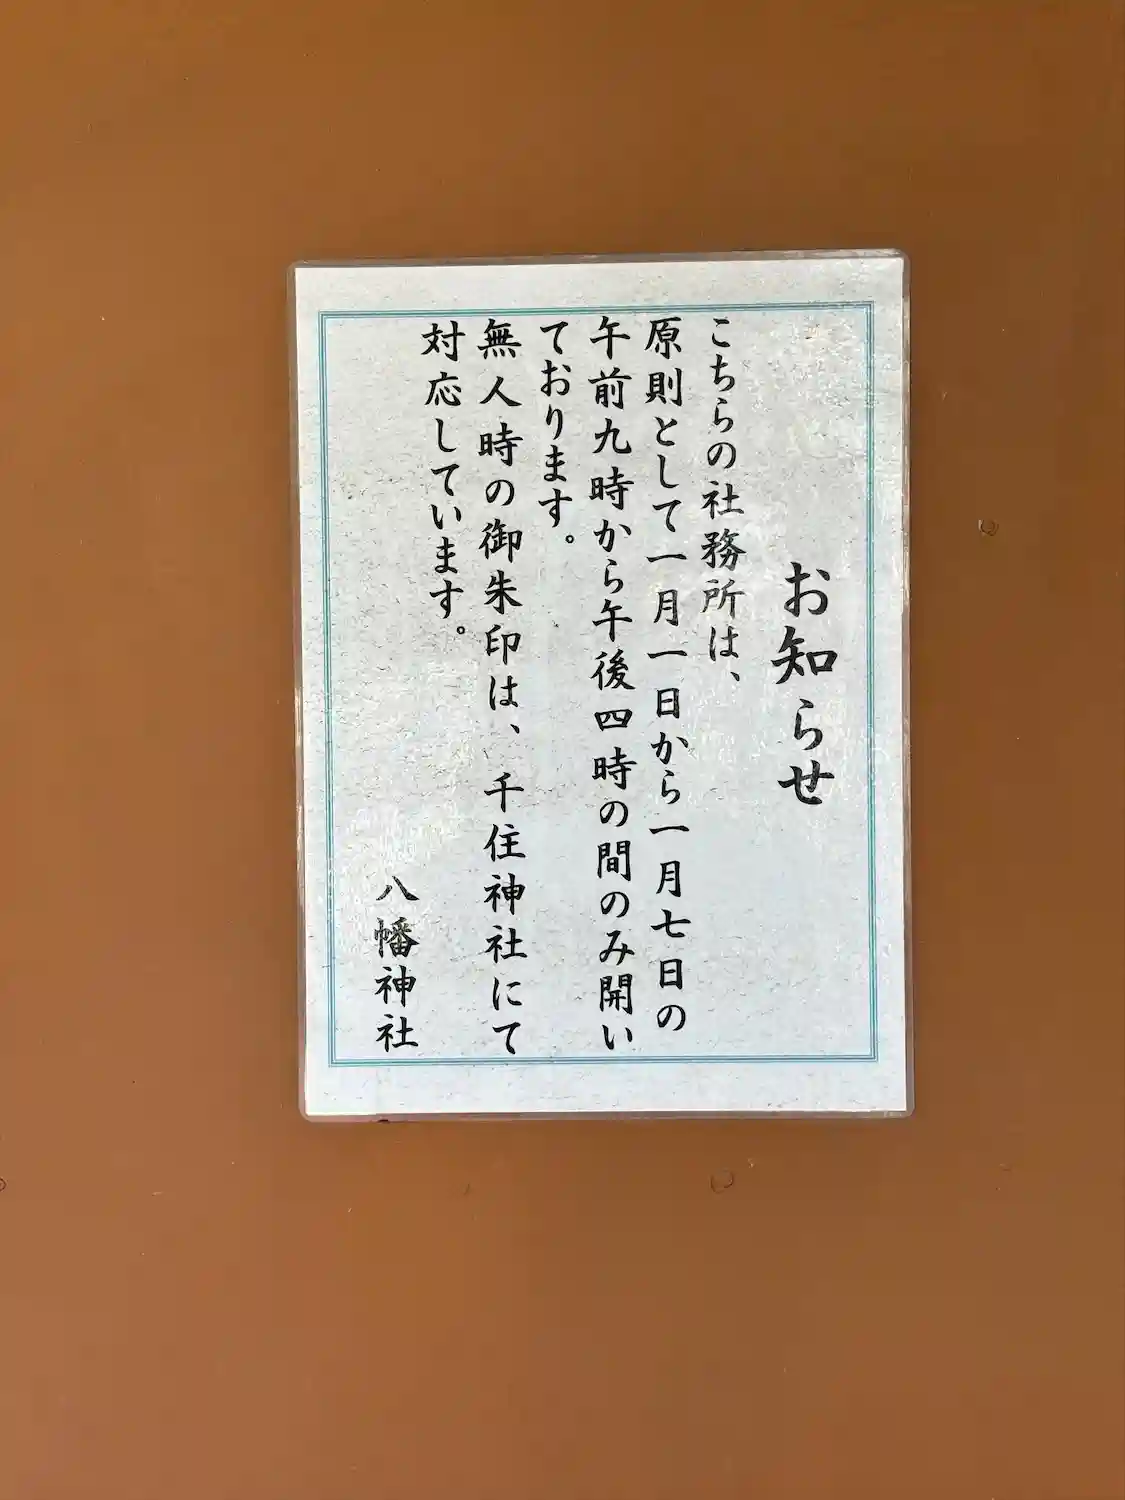 お知らせ
こちらの社務所は、
原則として一月一日から一月七日の
午前九時から午後四時の間のみ開い
ております。
無人時の御朱印は、千住神社にて
対応しています。
八幡神社